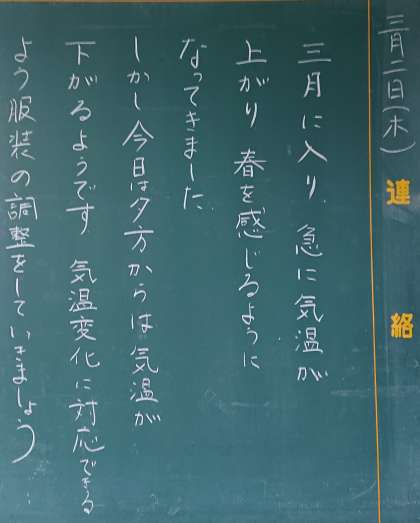 三月二日(木)
連絡
三月に入り、急に気温が
上がり 春を感じるように
なってきました。
しかし今日は夕方からは気温が
下がるようです 気温変化に対応できる
よう服装の調整をしていきましょう